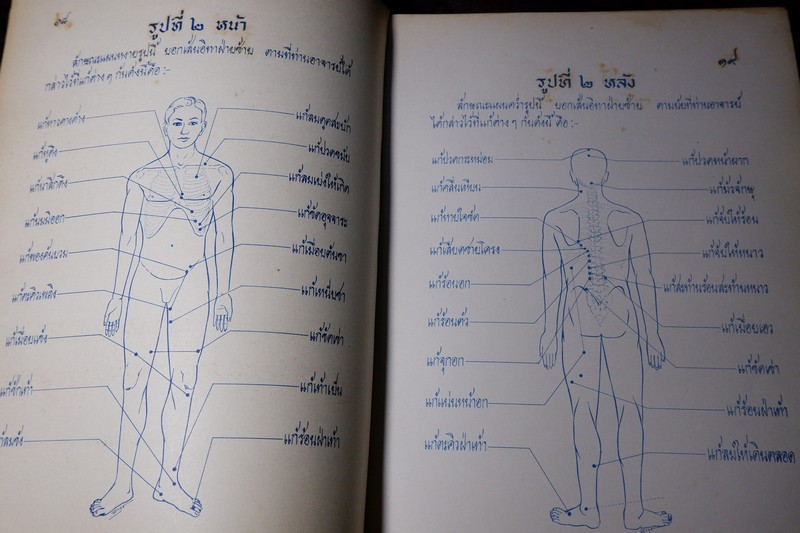 ๑๘
รูปที่ ๒ หน้า
ลักษณะแผนหงายรูปนี้ บอกเส้นอิทาฝ่ายซ้าย ตามที่ท่านอาจารย์ได้
กล่าวไว้ที่แก้ต่าง ๆ กันดังนี้คือ :-
แก้หาวคางค้าง
แก้หูตึง
แก้นาสิกตึง
แก้นมมิออก
แก้ท้องตันบวม
แก้ตะคิวเพลิง
แก้เมื่อยแข้ง
แก้ลมคูถสะบัก
แก้ปวดขมับ
แก้ลมเบ่งให้เกิด
แก้ขัดอุจจาระ
แก้เมื่อยต้นขา
แก้เหน็บชา
แก้ขัดเข่า
แก้เท้าเย็น
แก้ร้อนฝ่าเท้า
๑๙
รูปที่ ๒ หลัง
ลักษณะแผนคว่ำรูปนี้ บอกเส้นอิทาฝ่ายซ้าย ตามนัยที่ท่านอาจารย์
ได้กล่าวไว้ที่แก้ต่าง ๆ กันดังนี้ คือ :-
แก้ปวดกระหม่อม
แก้คลื่นเหียน
แก้หายใจขัด
แก้เสียดชายโครง
แก้ร้อนอก
แก้ร้อนตัว
แก้จุกอก
แก้แน่นหน้าอก
แก้ตะคิวฝ่าเท้า
แก้ปวดหน้าผาก
แก้มัวจักษุ
แก้จับให้ร้อน
แก้จับให้หนาว
แก้สะท้านร้อนสะท้านหนาว
แก้เมื่อยเอว
แก้ขัดเข่า
แก้ร้อนฝ่าเท้า
แก้ลมให้เดินตลอด